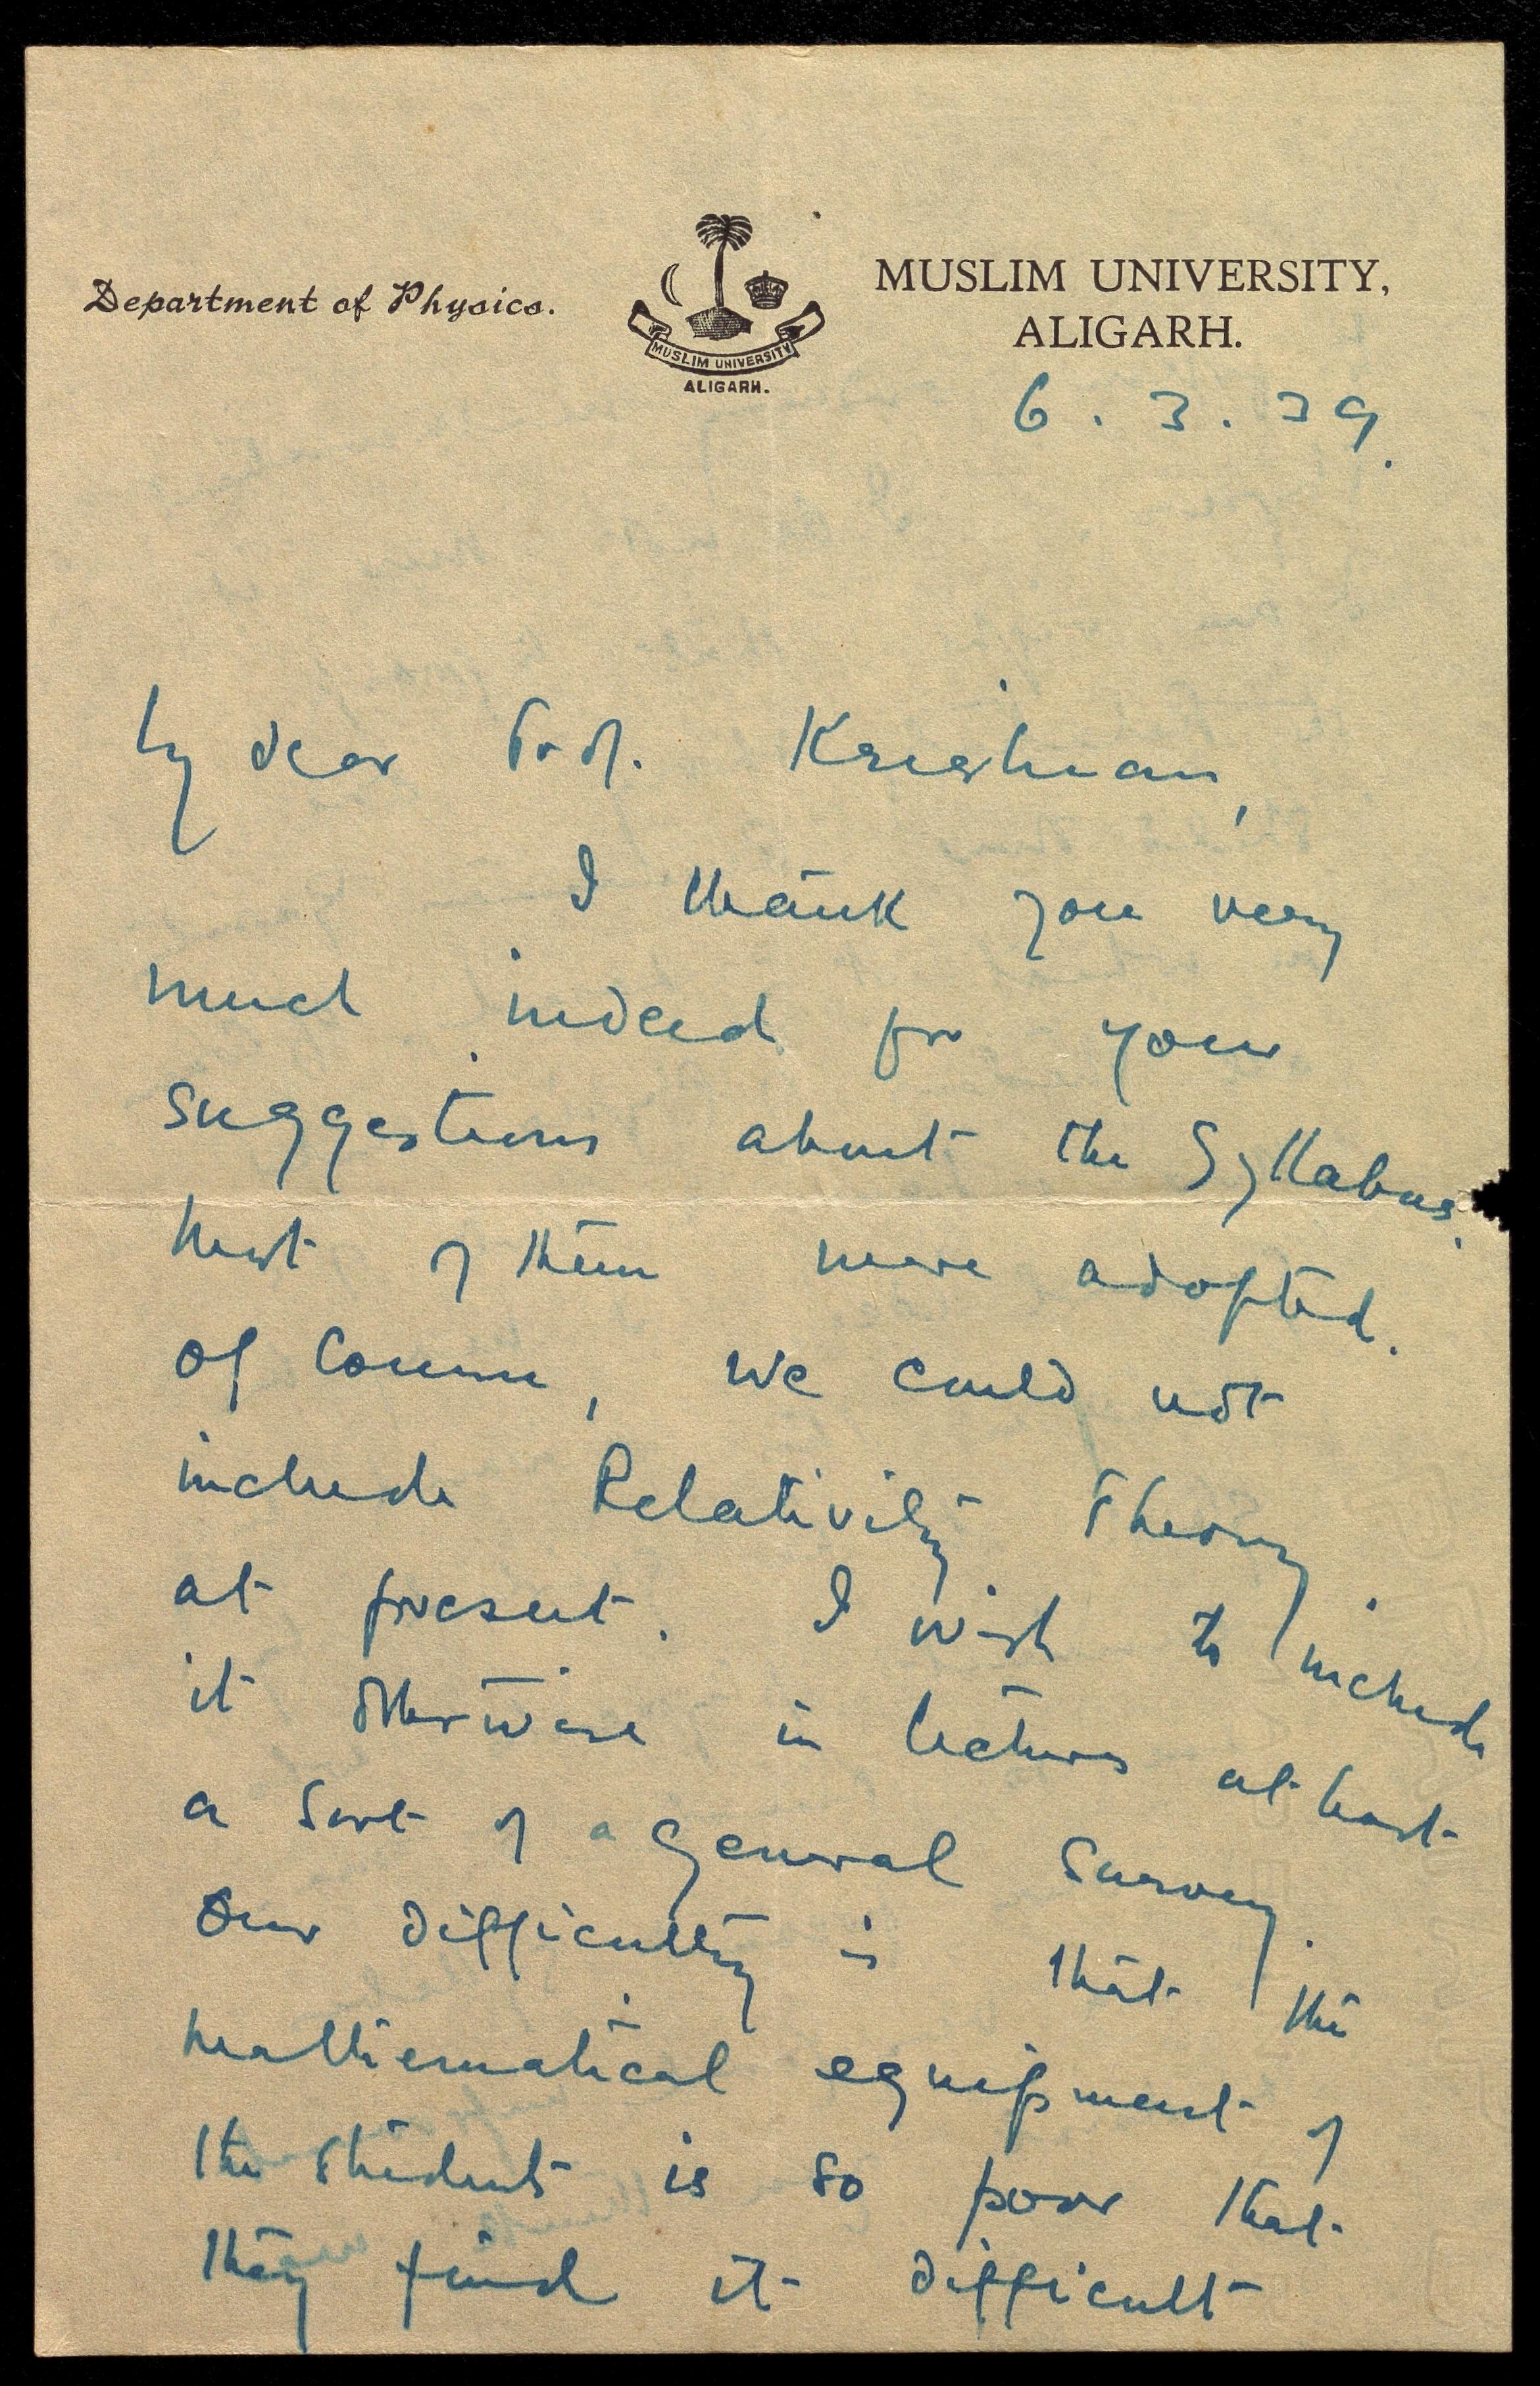 Department of Physics.
MUSLIM UNIVERSITY
ALIGARH.
MUSLIM UNIVERSITY,
ALIGARH.
6. 3. 39.
My dear Prof. Krishnan,
I thank you very
much indeed for your
suggestions about the Syllabus.
Most of them were adopted.
Of Course, we could not
include Relativity Theory
at present. I wish to include
it otherwise in lectures at least
a sort of a general survey.
Our difficulty is that the
mathematical equipment of
the student is so poor that
they find it difficult